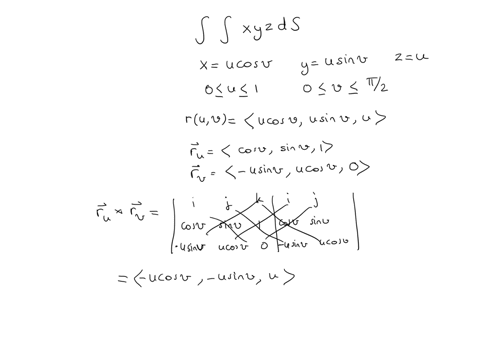 ∫ ∫ xyzdS
x = ucosv y = usinv z = u
0 ≤ u ≤ 1 0 ≤ v ≤ π/2
r(u,v) = <ucosv, usinv, u>
r⃗u = <cosv, sinv, 1>
r⃗v = <-usinv, ucosv, 0>
i j k i j
r⃗u × r⃗v = | cosv sinv 1 | cosv sinv |
-usinv ucosv 0 -usinv ucosv
= <-ucosv, -usinv, u>